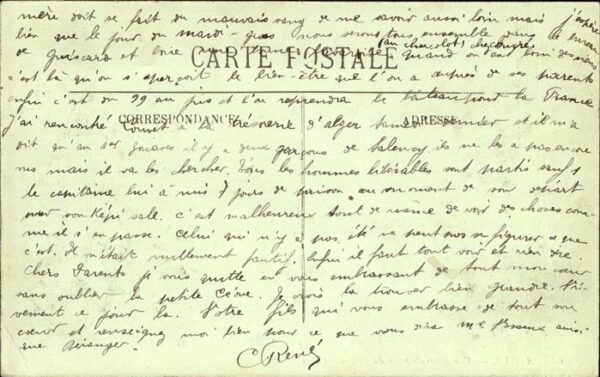 mère doit se fait du mauvais sang de me savoir aussi loin mais j'espère
bien que le jour du mardi-gras nous serons tous ensemble dans le bureau
de Guiscard et boire une bonne
au chocolat chez
quand on est loin des siens
CARTE POSTALE
c'est là qu'on s'aperçoit le bien-être que l'on a auprès de ses parents
enfin c'est du 99 au jus et l'on reprendra le bateau pour la France
CORRESPONDANCE
ADRESSE
J'ai rencontré à la trésorerie d'alger samedi dernier et il m'a
dit qu'au 1er zouaves il y a deux garçons de Salency, ils ne les a pas encore
vus mais il va les chercher. Tous les hommes libérables sont partis sauf 1
le capitaine lui a mis 7 jours de prison au moment de son départ
pour son Képi sale. C'est malheureux tout de même de voir des choses com-
me il s'en passe. Celui qui n'y a pas été ne peut pas se figurer ce que
c'est. Il n'était nullement fautif. Enfin il faut tout voir et rien dire.
Chers Parents je vous quitte en vous embrassant de tout mon cœur
sans oublier la petite Je crois la trouver bien grandie. Vi-
vement ce jour là. Votre fils qui vous embrasse de tout son
cœur et renseignez moi bien pour ce que vous dira Mr ainsi
que Béranger.
René